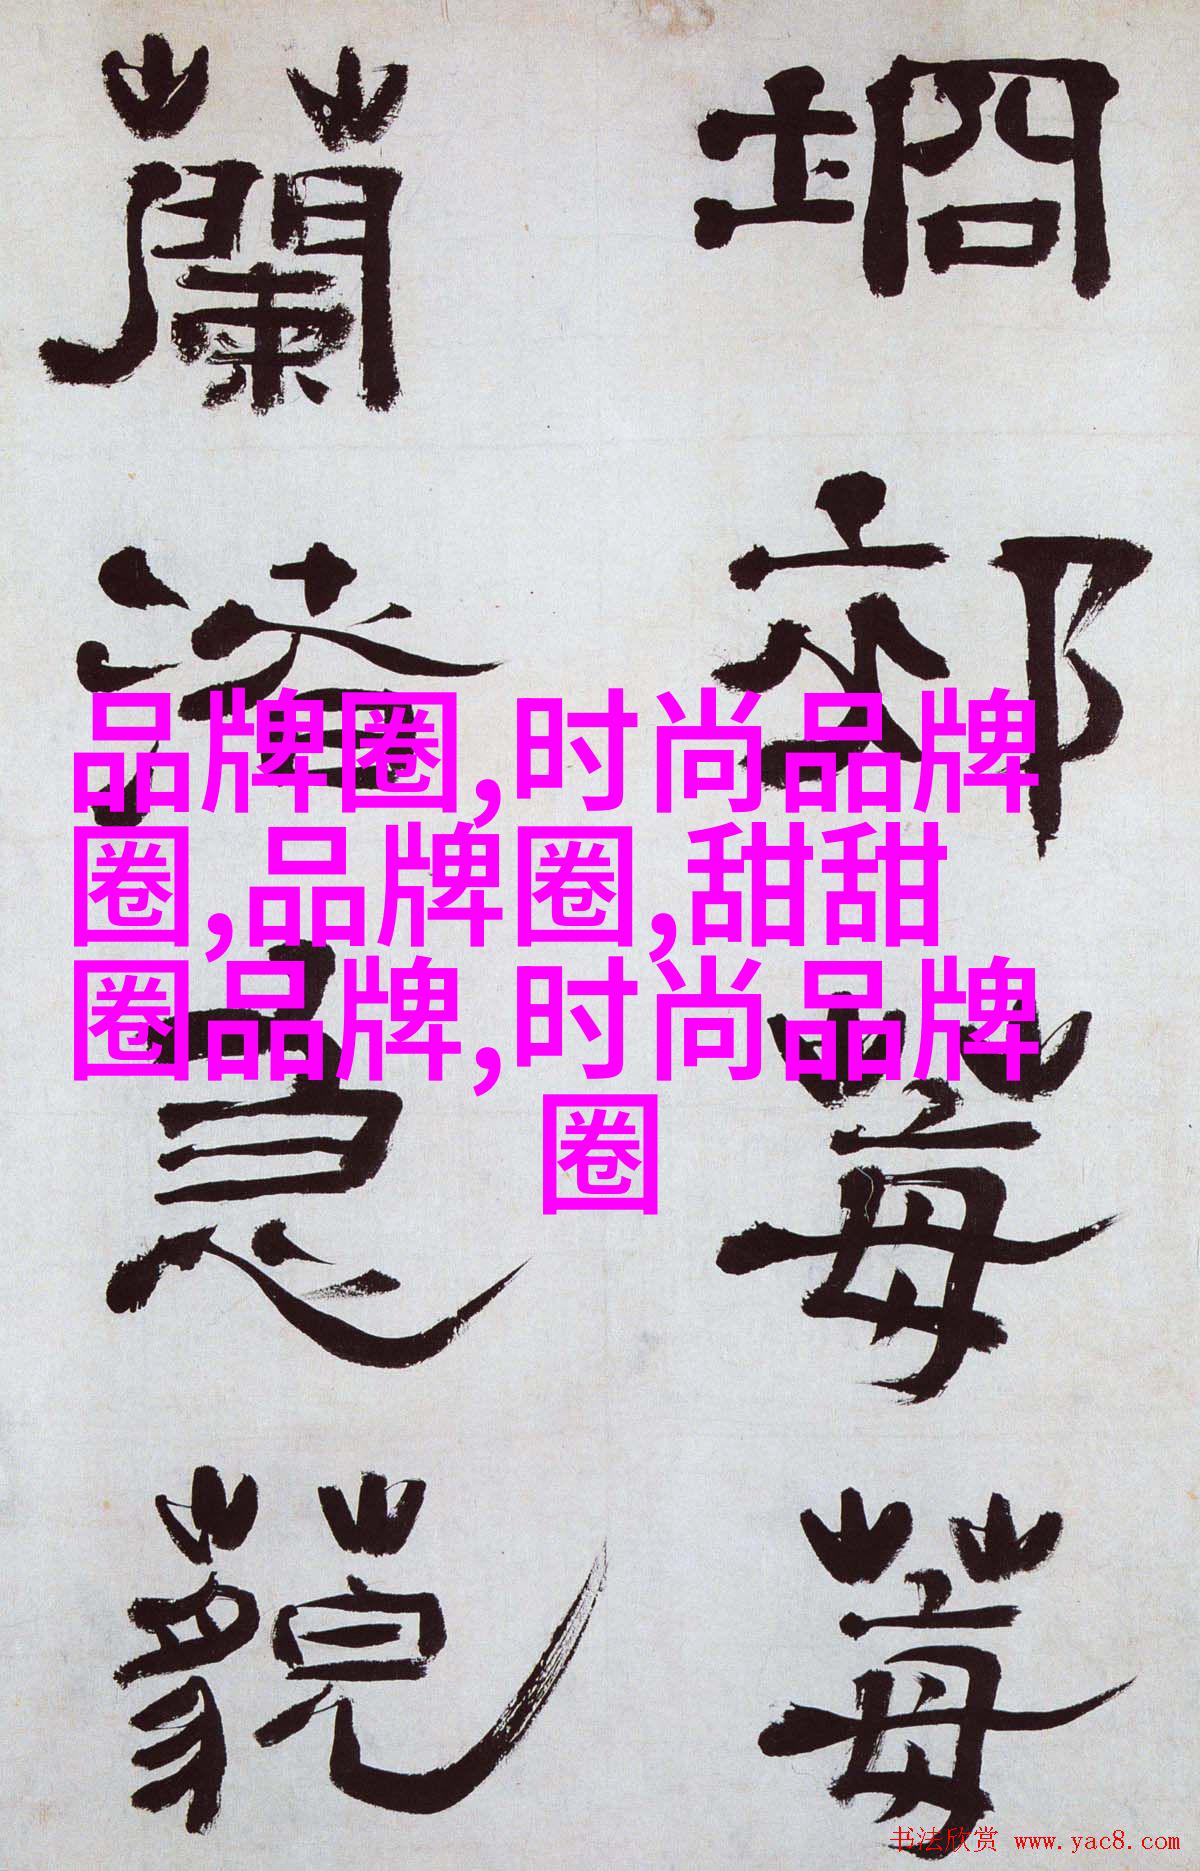 品牌圈,时尚品牌
圈,品牌圈,甜甜
圈品牌,时尚品牌
圈
坰郊莓莓
蘭渚急藐
书法欣赏 www.yac8.com